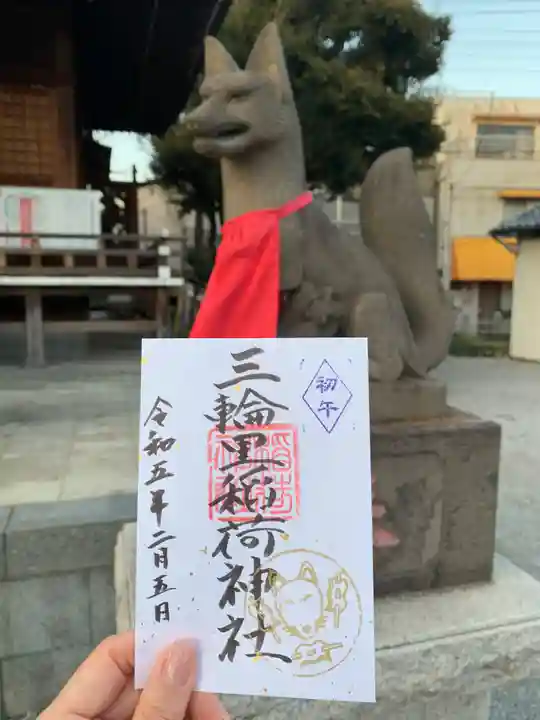 初午
三輪里稲荷神社
令和五年二月五日